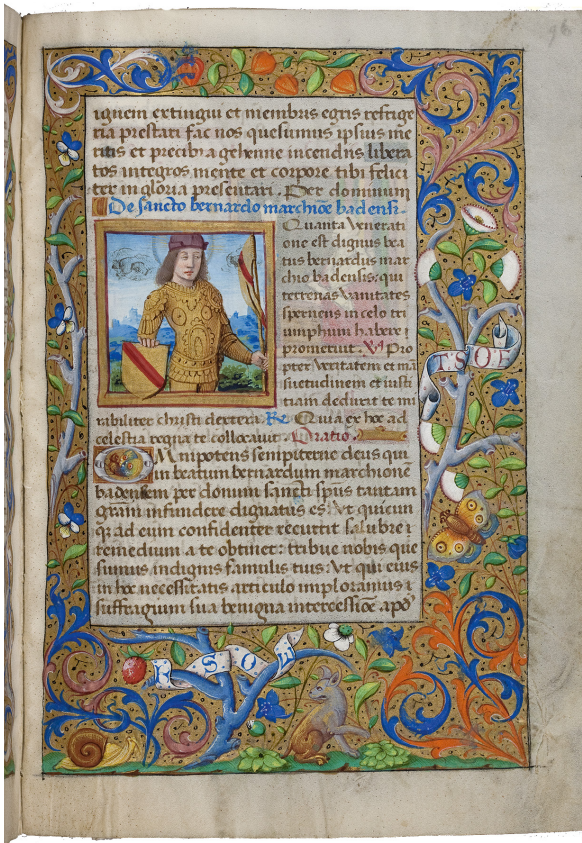 96
ignem extingui et membris egris refrige
ria prestari fac nos quesumus ipsius me
ritis et precibꝫ a gehenne incendiis libera
tos integros mente et corpore tibi felici
ter in gloria presentari. Per dominum
De sancto bernardo marchiōe badensi.
Quanta venerati
one est dignus bea
tus bernardus mar
chio badensis: qui
terrenas vanitates
spernens in celo tri
umphum habere
promeruit. V Pro
pter veritatem et mā
suetudinem et iusti
tiam deduxit te mi
rabiliter christi dextera R Quia ex hoc ad
celestia regna te collocavit. Oratio
Omnipotens sempiterne deus qui
in beatum bernardum marchionē
badensem per donum sancti spūs tantam
gram infundere dignatus es: Vt quicun
qꝫ ad eum confidenter recurrit salubre
remedium a te obtinet: tribue nobis que
sumus indignis famulis tuis: Vt qui eius
in hoc necessitatis articulo imploramus
suffragium sua benigna intercessiōe apō
T. SOT
R SOW